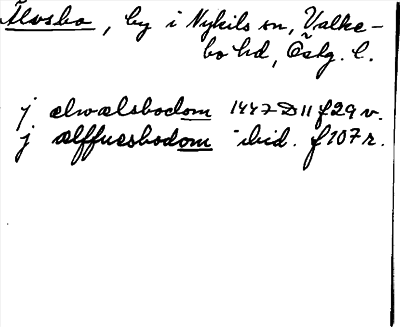 Älvsbo, by i Nykils sn, Valke-
bo hd, Östg. l.
j ælwælsbodom 1447 D 11 f 29 v.
j ælffuesbodom ibid. f 107 r.